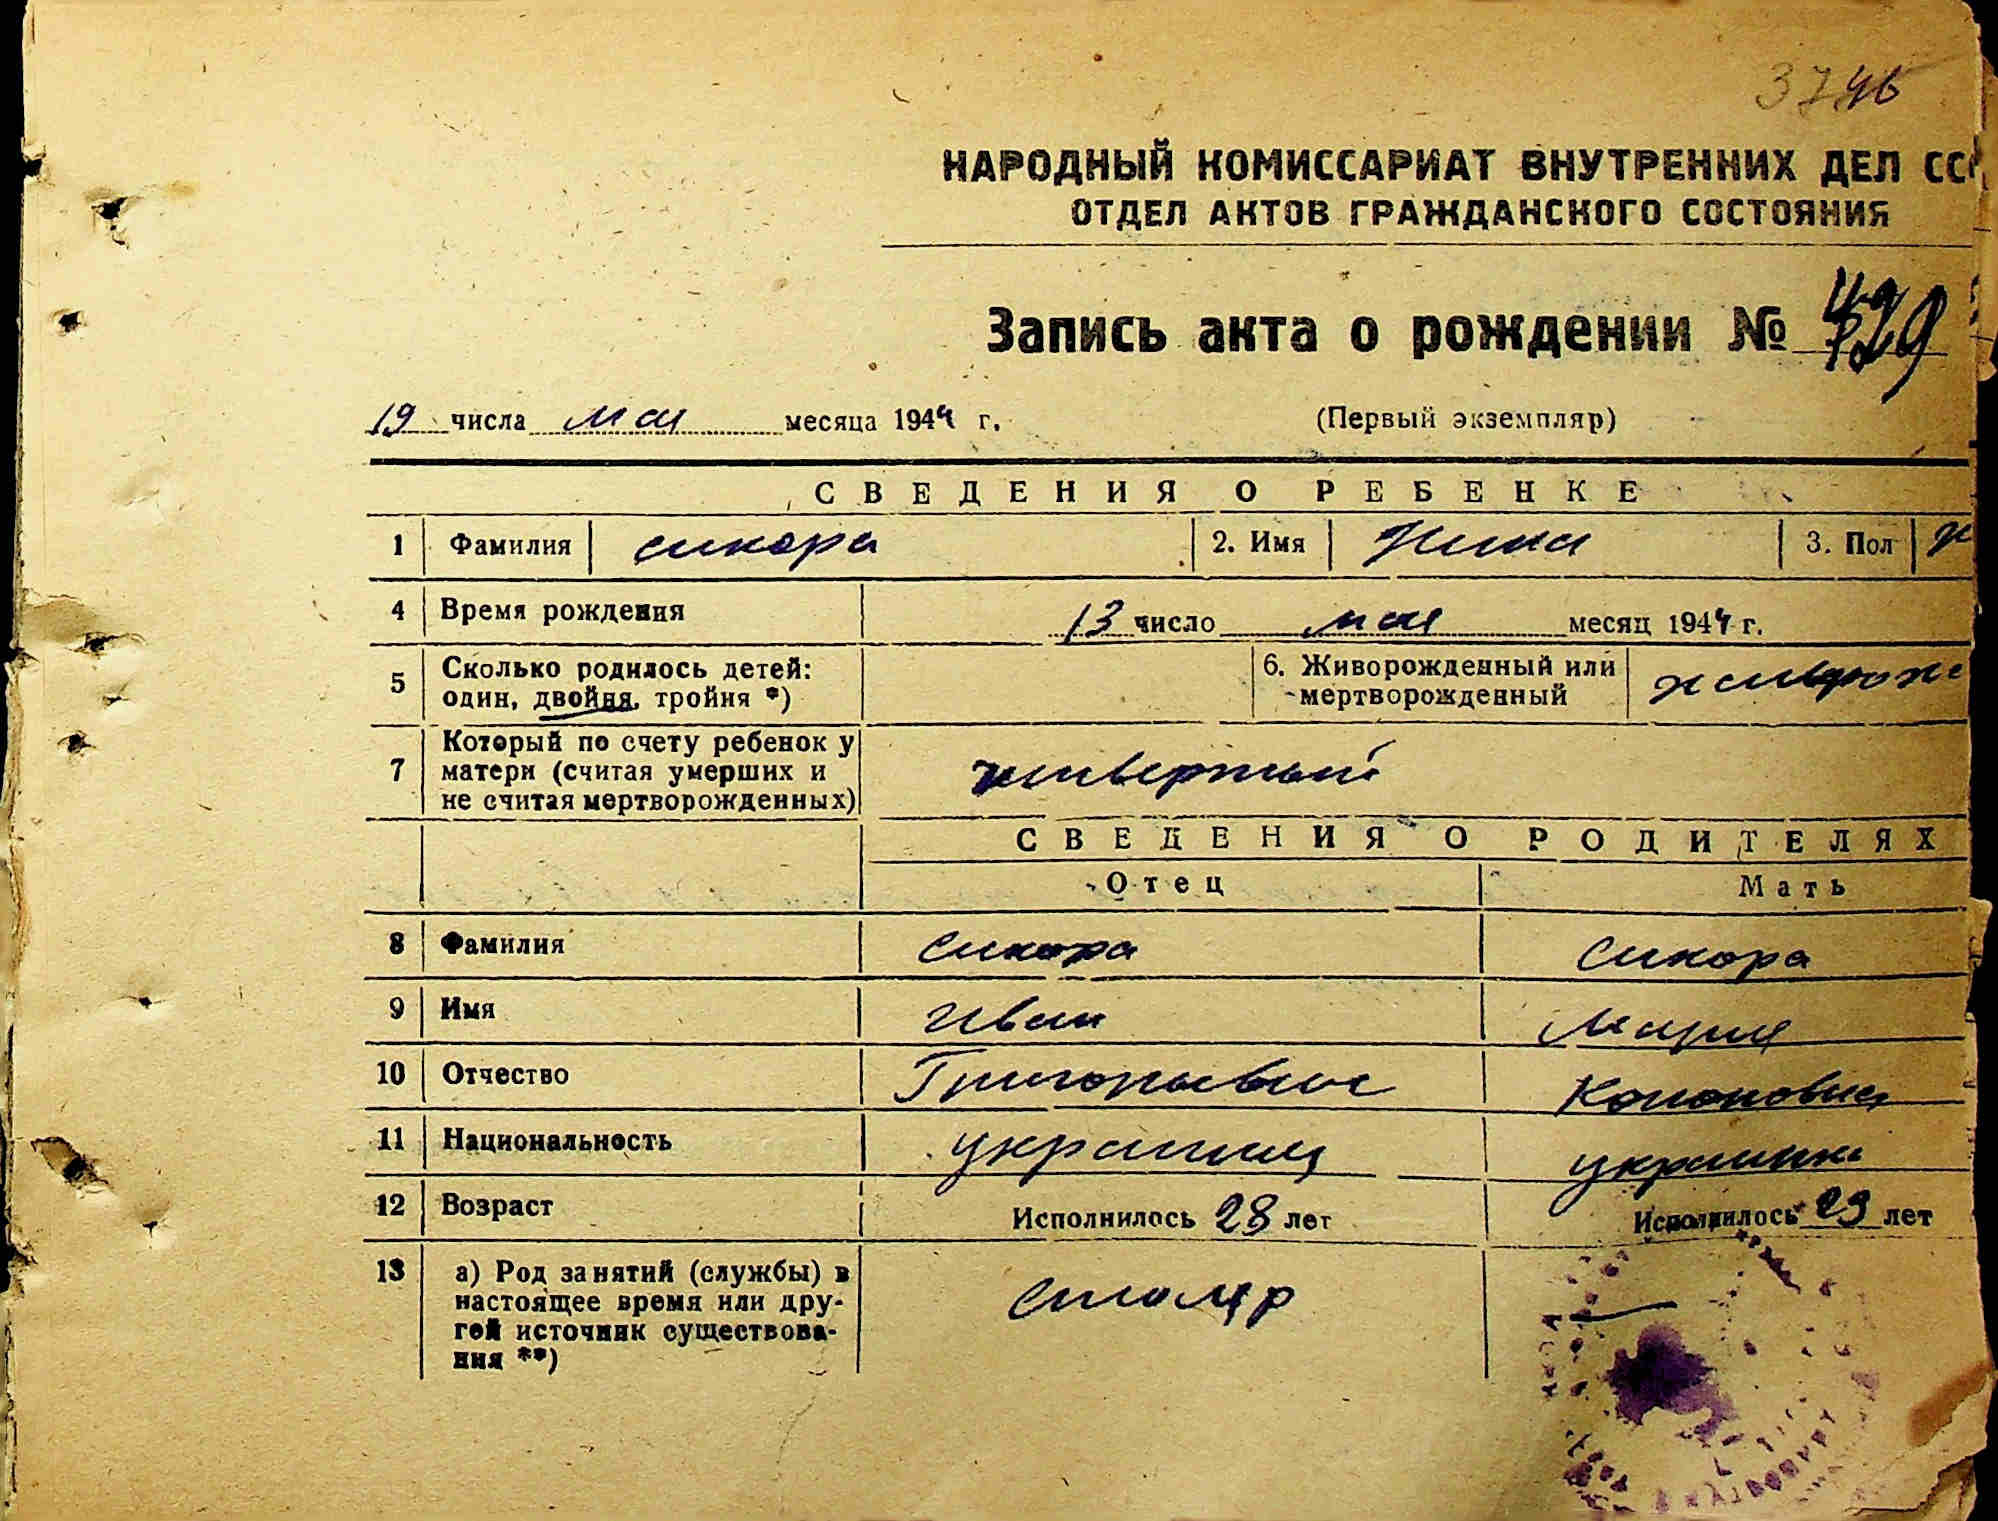 3746
НАРОДНЫЙ КОМИССАРИАТ ВНУТРЕННИХ ДЕЛ СС
ОТДЕЛ АКТОВ ГРАЖДАНСКОГО СОСТОЯНИЯ
Запись акта о рождении №
19 числа мая месяца 1944 г. (Первый экземпляр)
СВЕДЕНИЯ О РЕБЕНКЕ
1 Фамилия Сикора 2. Имя Нина 3. Пол ж
4 Время рождения 13 число мая месяц 1944 г.
5 Сколько родилось детей: один, двойня, тройня *) 6. Живорожденный или мертворожденный живорож
7 Который по счету ребенок у матери (считая умерших и не считая мертворожденных) четвертый
СВЕДЕНИЯ О РОДИТЕЛЯХ
Отец Мать
8 Фамилия Сикора Сикора
9 Имя Иван Мария
10 Отчество Григорьевич Кононовна
11 Национальность украинец украинка
12 Возраст Исполнилось 28 лет Исполнилось 29 лет
13 а) Род занятий (службы) в настоящее время или другой источник существования **) столяр —